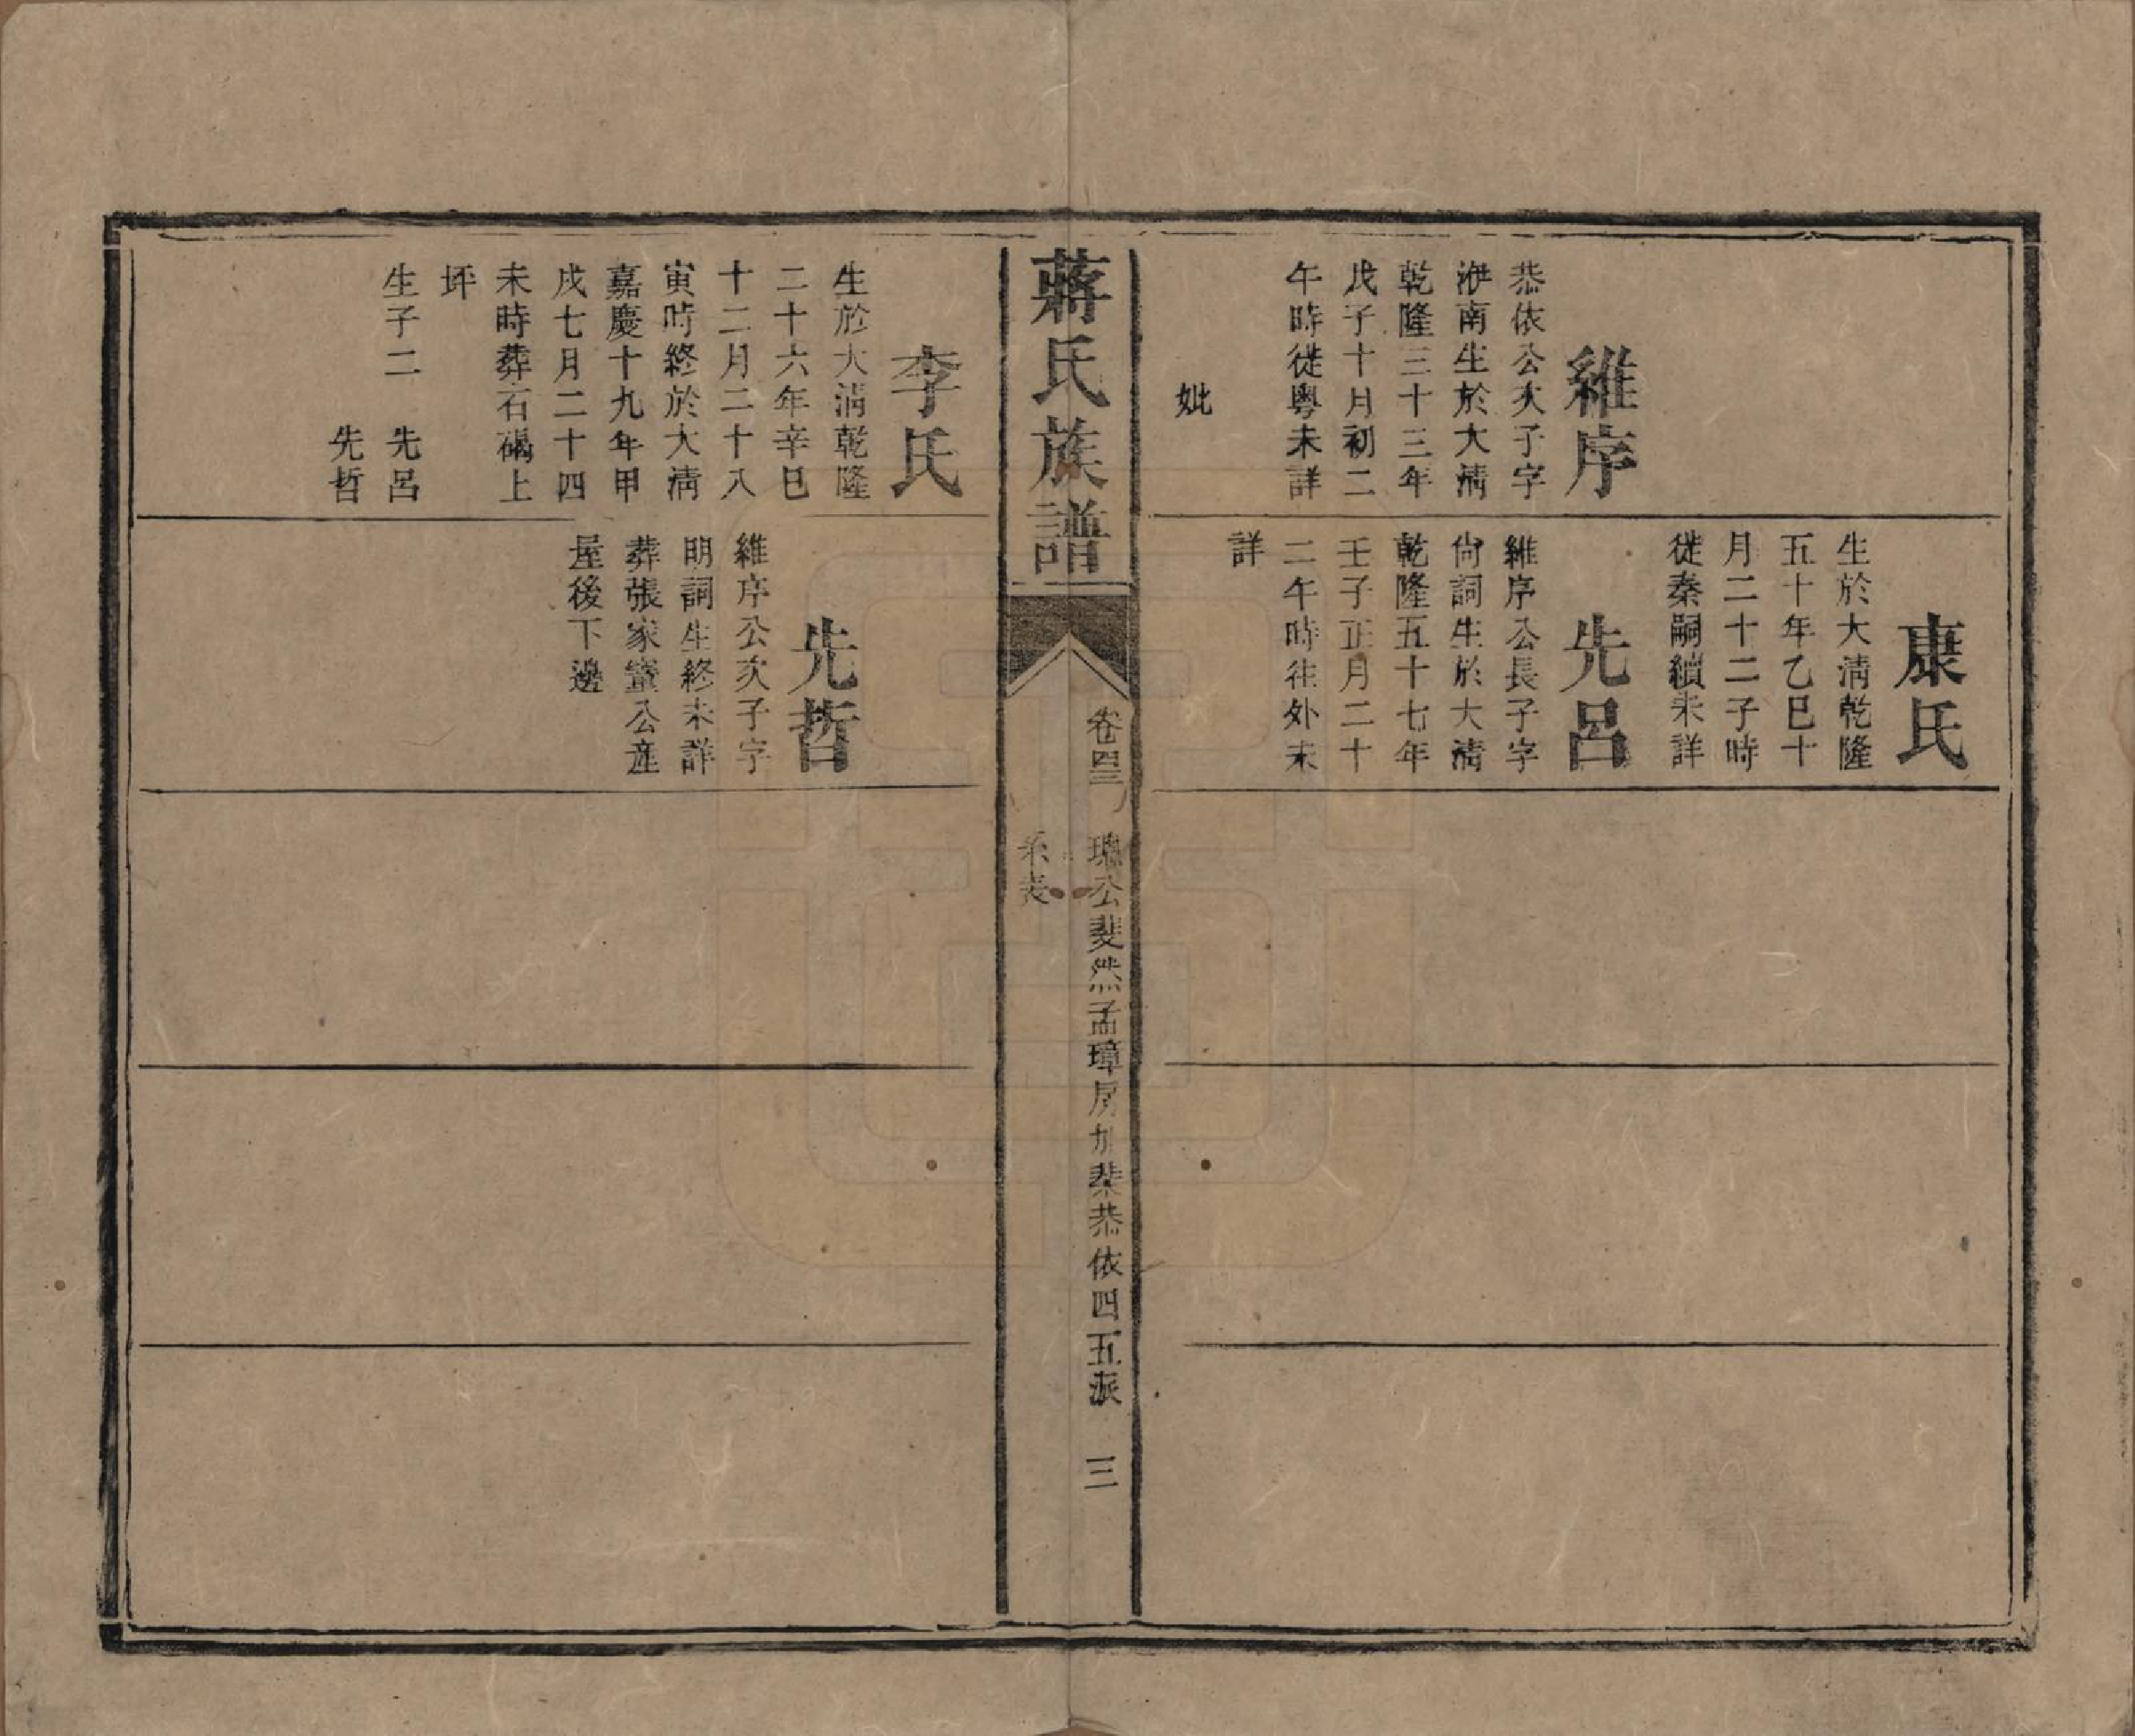 維序
恭依公次子字
淮南生於大清
乾隆三十三年
戊子十月初二
午時從粵未詳
妣
康氏
生於大清乾隆
五十年乙巳十
月二十二子時
從秦嗣續未詳
先呂
維序公長子字
尙詞生於大清
乾隆五十七年
壬子正月二十
二午時往外未
詳
蔣氏族譜
卷四三
公斐然孟璋房 恭依四五派
三
系表
李氏
生於大淸乾隆
二十六年辛巳
十二月二十八
寅時終於大淸
嘉慶十九年甲
戌七月二十四
未時葬石碣上
坪
生子二 先呂
先哲
先哲
維序公次子字
明詞生終未詳
葬張家 公 
屋後下邊